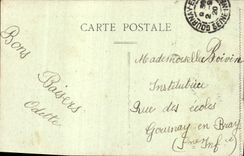 CARTE POSTALE
Bons
Baisers
Odette
Mademoiselle Boivin
Institutrice
Rue des écoles
Gournay en Bray
Sne Infre